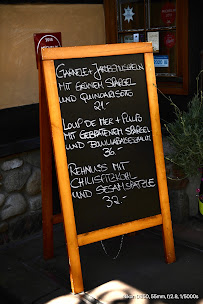 Garnele + Jakobsmuschel
mit grünem Spargel
und Quinoarisotto
21.-
Loup de Mer + Pulpo
mit gebratenem Spargel
und
36.-
Rehnuss mit
Chilispitzkohl
und Sesamspätzle
32.-
50, 55mm, f/2.8, 1/5000s